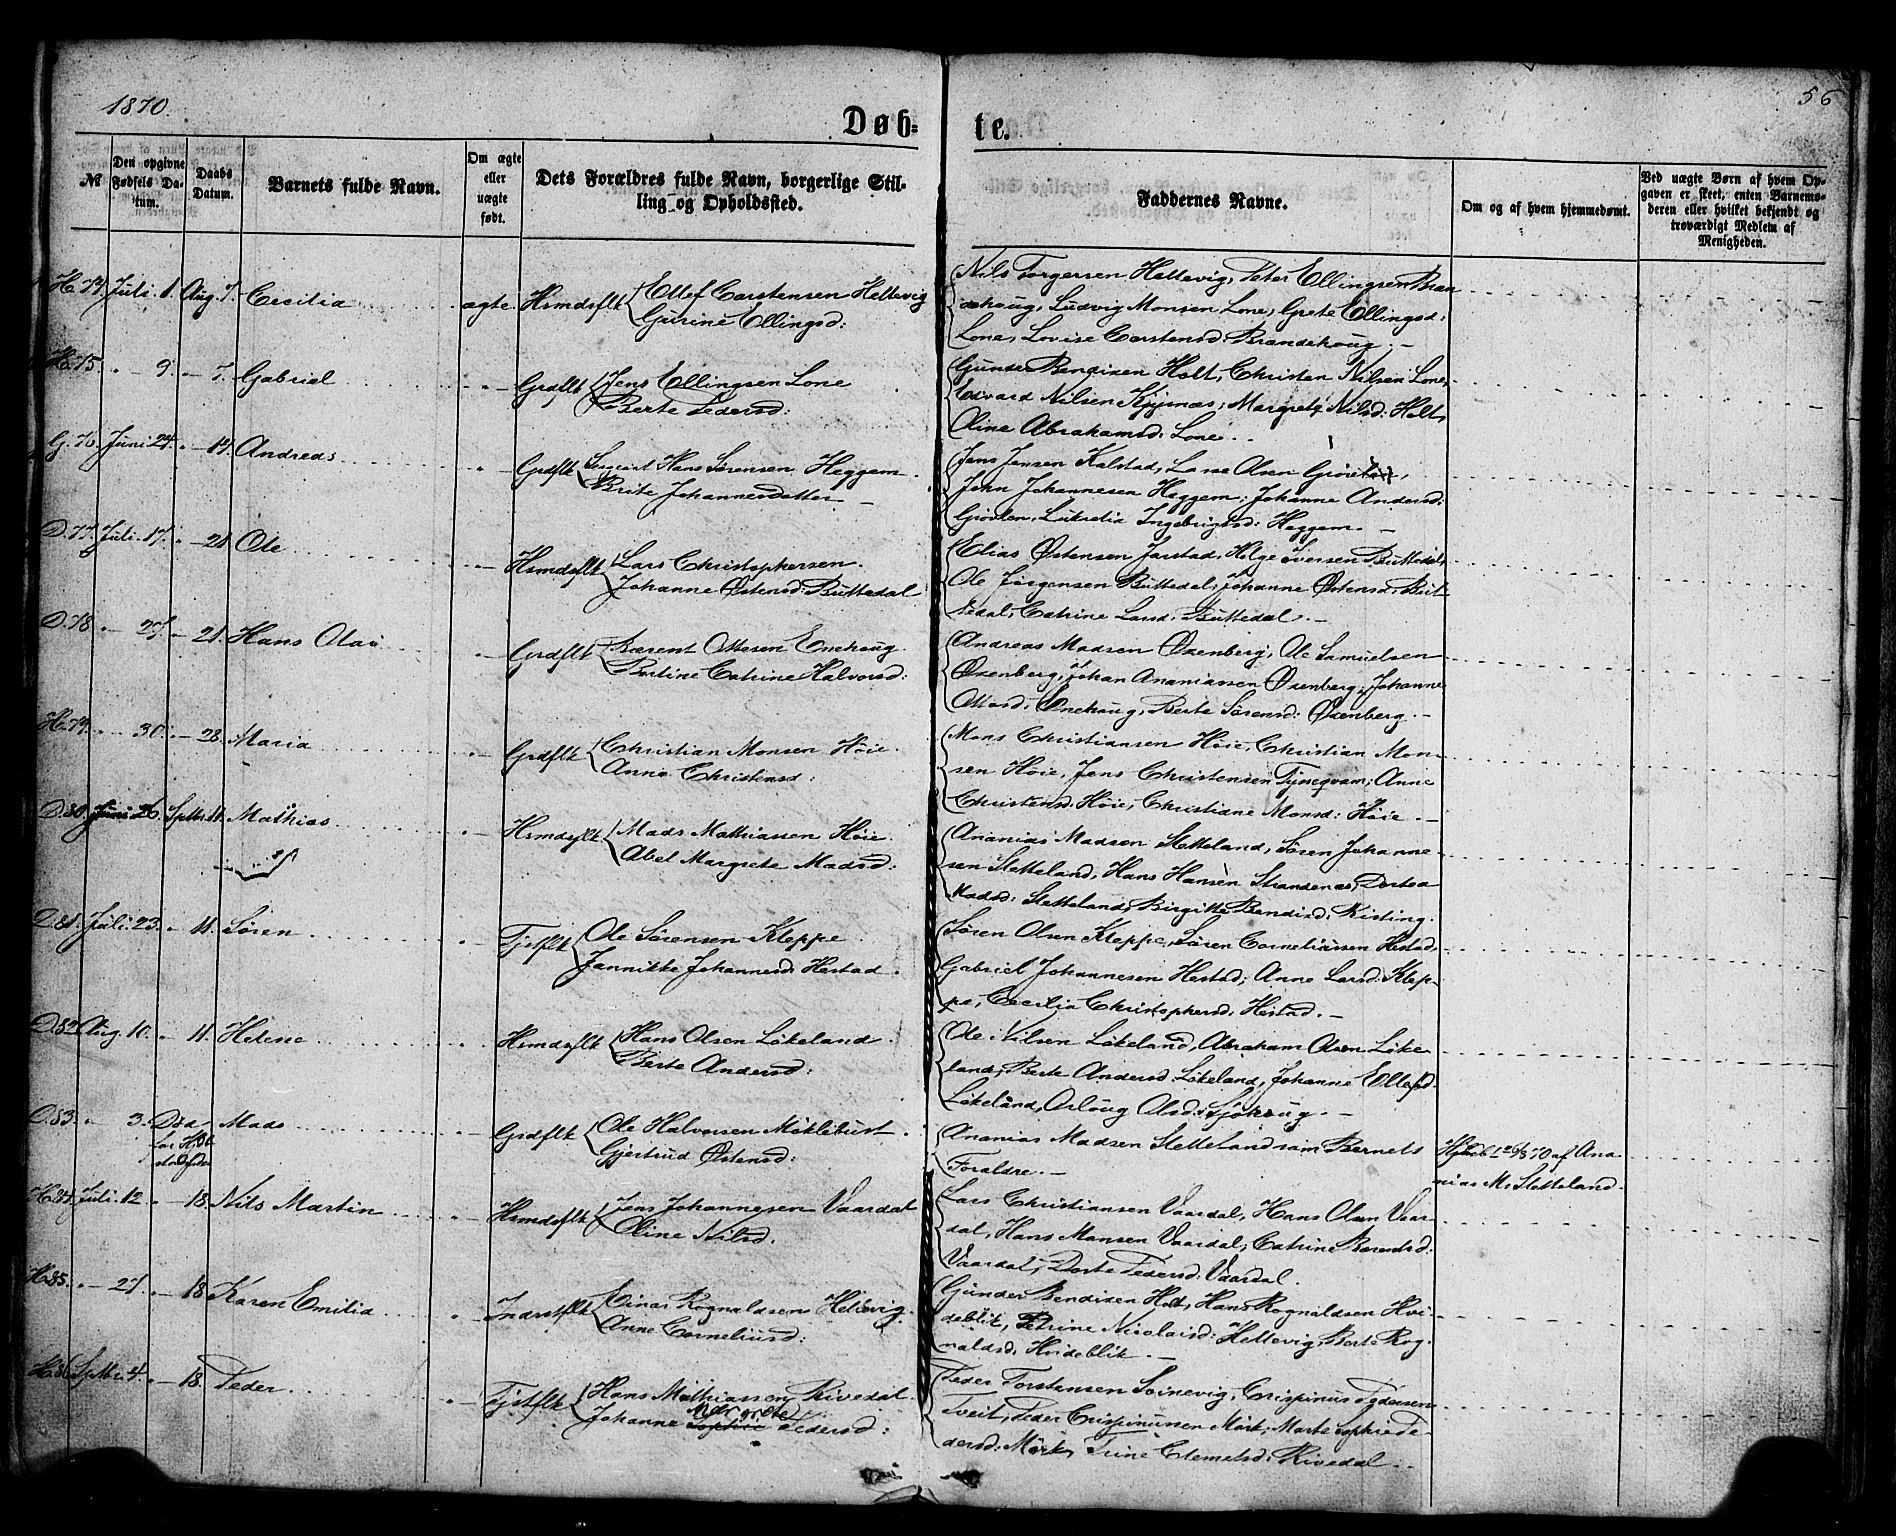 1870.
56
Døb-
te.
№
Den opgivne Fødsels Datum.
Daabs Datum.
Barnets fulde Navn.
Om ægte eller uægte født.
Dets Forældres fulde Navn, borgerlige Stilling og Opholdssted.
Faddernes Navne.
Om og af hvem hjemmedøbt.
Ved uægte Børn af hvem Opgaven er skeet, enten Barnemoderen eller hvilket bekjendt og troværdigt Medlem af Menigheden.
H. 74. Juli. 1. Aug. 7. Cecilia ægte. Hsmdsflk Ellef Carstensen Hellevig
Gurine Ellingsd:
Nils Torgersen Hellevig, Peter Ellingsen Bran
dehaug, Ludvig Monsen Lone, Grete Ellingsd:
Lone, Lovise Carstensd: Brandehaug. -
H. 75. " - 9. " - 7. Gabriel " - Grdflk Jens Ellingsen Lone
Berte Pedersd:
Gunder Bendixen Holt, Christen Nilsen Lone,
Edvard Nilsen, Margrete Nilsd: Holt,
Oline Abrahamsd: Lone. -
G. 76. Juni 24. " - 14. Andreas " - Grdflk Sergeant Hans Sørensen Heggem
Brite Johannesdatter -
Jens Jensen Kalstad, Lasse Olsen
John Johannesen Heggem, Johanne Andersd:
Grovlen, Lukretia Ingebrigtsd: Heggem. -
D. 77. Juli. 17. " - 21. Ole " - Hsmdsflk Lars Christophersen.
Johanne Østensd: Buttedal
Elias Østensen Jarstad, Helge Iversen Buttedal,
Ole Jørgensen Buttedal, Johanne Østensd: But
tedal, Catrine Larsd: Buttedal. -
D. 78 " - 27. - 21. Hans Olai " - Grdflk Bærent Ottesen Enehaug
Bertine Catrine Halvorsd:
Andreas Madsen Øxenberg, Ole Samuelsen
Øxenberg, Johan Ananiassen Øxenberg, Johanne
Ottesd: Enehaug, Berte Sørensd: Øxenberg. -
H. 79. " - 30. " - 28. Maria " - Grdflk Christian Monsen Høie.
Anne Christensd:
Mons Christiansen Høie, Christian Mon-
sen Høie, Jens Christensen Tyneqvam, Anne
Christensd: Høie, Christiane Monsd: Høie. -
D. 80. Juni 26. Sptbr. 11. Mathias " - Hsmdsflk Mads Mathiassen Høie.
Abel Margrete Madsd:
Ananias Madsen Sletteland, Søren Johanne-
sen Sletteland, Hans Hansen Strandenæs, Dortea
Madsd: Sletteland, Birgitte Bendixd: Risting.
D. 81. Juli. 23. " 11. Søren " - Tjstflk Ole Sørensen Kleppe
Jannikke Johannesd: Hestad.
Søren Olsen Kleppe, Søren Corneliussen Hestad,
Gabriel Johannesen Hestad, Anne Larsd: Klep-
pe, Cecilia Christophersd: Hestad. -
D. 82 Aug. 10. " 11. Helene " - Hsmdsflk Hans Olsen Løkeland.
Berte Andersd:
Ole Nilsen Løkeland, Abraham Olsen Løke-
land, Berte Andersd: Løkeland, Johanne Ellefsd:
Løkeland, Aslaug Olsd:
D. 83. " - 3. Død Mads " - Grdflk Ole Halvorsen Møklebust.
Gjertrud Østensd:
Ananias Madsen Sletteland samt Barnets
Forældre. -
af Ana
nias M. Sletteland.
H. 84. Juli. 12 " - 18. Nils Martin " - Hsmdsflk Jens Johannesen Vaardal
Oline Nilsd.
Lars Christiansen Vaardal, Hans Olsen Vaar-
dal, Hans Monsen Vaardal, Catrine Bærentsd:
Vaardal, Dorte Pedersd: Vaardal.
H. 85. " - 27. " - 18 Karen Emilia " Indrstflk Einar Rognaldsen Hellevig.
Anne Corneliusd:
Gunder Bendixen Holt, Hans Rognaldsen Hvi-
deblik, Petrine Nicolaisd: Hellevig, Berte Rog-
naldsd: Hvideblik. -
H. 86 Sptbr. 4. " - 18. Peder " - Tjstflk Hans Mathiassen Rivedal.
Johanne Sophie Margrete Pedersd:
Peder Torstensen Soinevig, Crispinus Pedersen
Tveit, Peder Crispinusen Mørk, Marte Sophie Pe-
dersd: Mørk, Trine Clemetsd: Rivedal. -